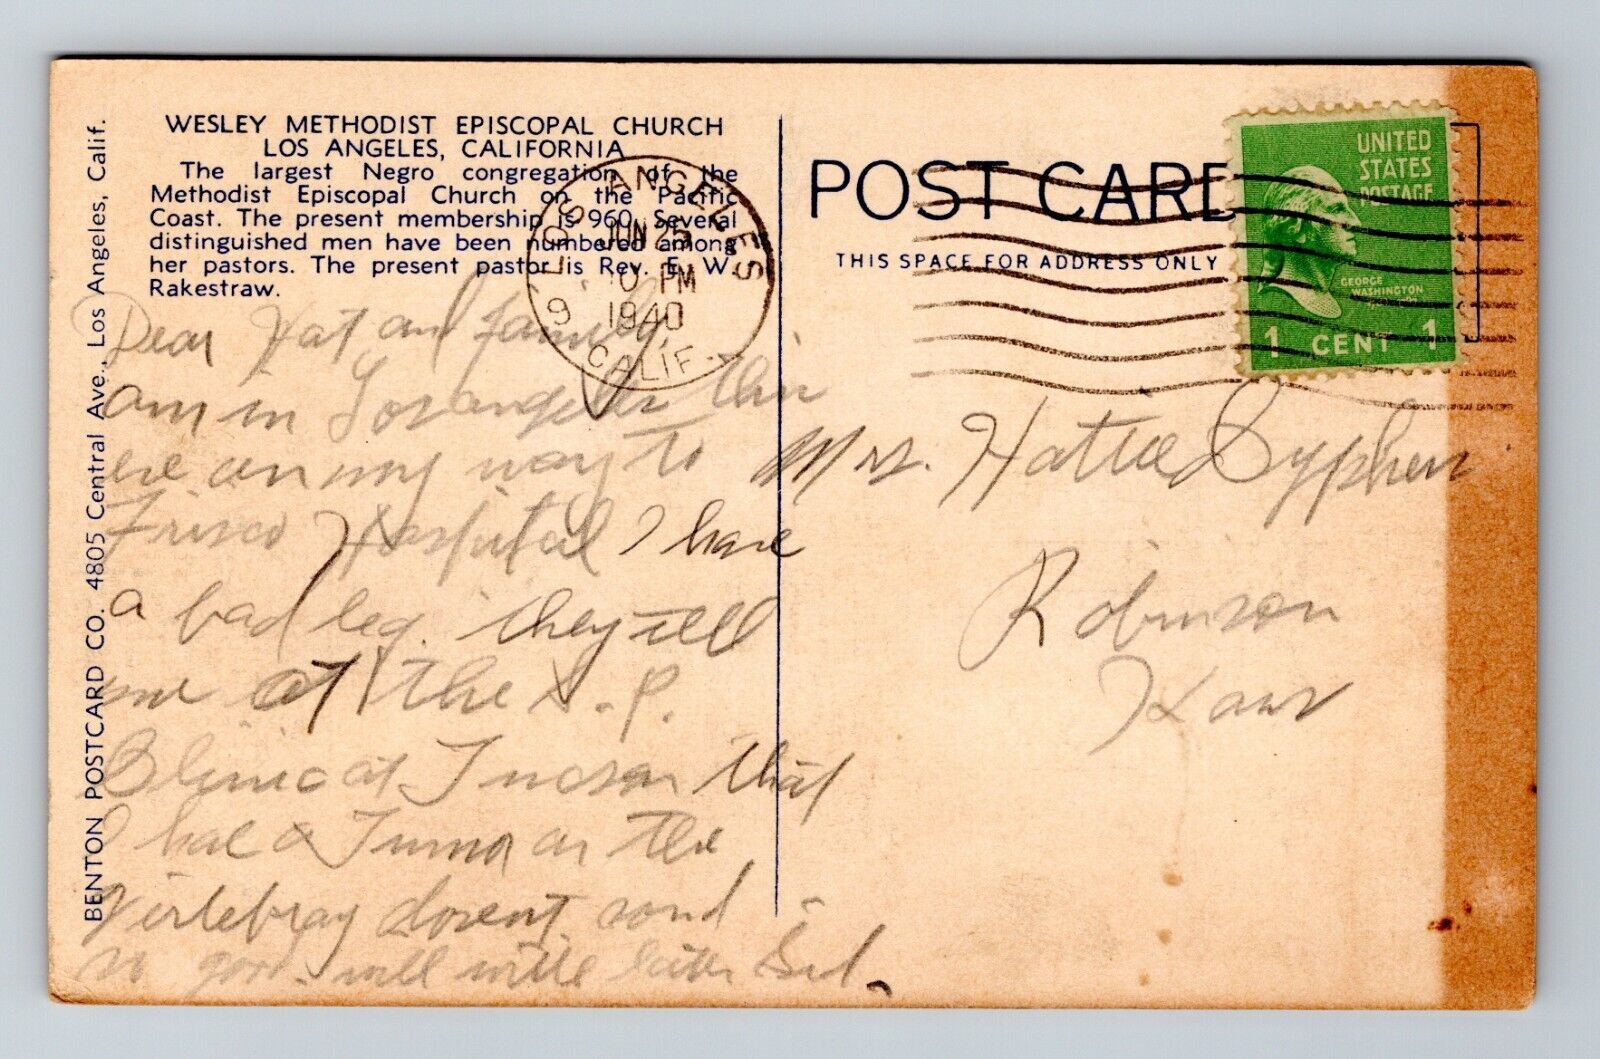 WESLEY METHODIST EPISCOPAL CHURCH
LOS ANGELES, CALIFORNIA
The largest Negro congregation of the
Methodist Episcopal Church on the Pacific
Coast. The present membership is 960. Several
distinguished men have been numbered among
her pastors. The present pastor is Rev. E. W.
Rakestraw.
BENTON POSTCARD CO. 4805 Central Ave., Los Angeles, Calif.
Dear Hat and family,
am in Los angeles this
eve on my way to
Frisco Hospital I have
a bad leg. they tell
me at the S.P.
Clinic at Tucson that
I have a Tumor on the
Vertebray dosent sound
so good. will write later Sid.
LOS ANGELES
JUN 25
10 PM
1940
CALIF.
9
POST CARD
THIS SPACE FOR ADDRESS ONLY
UNITED
STATES
POSTAGE
GEORGE
WASHINGTON
1 CENT 1
Mrs. Hattie Syphers
Robinson
Kans